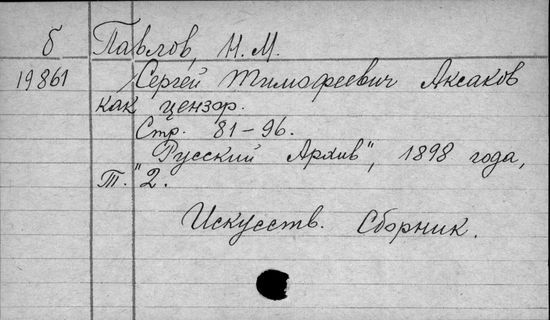 б Павлов, Н. М.
19861 Сергей Тимофеевич Аксаков
как цензор.
Стр. 81-96.
"Русский Архив", 1898 года,
т. 2.
Искусств. Сборник.